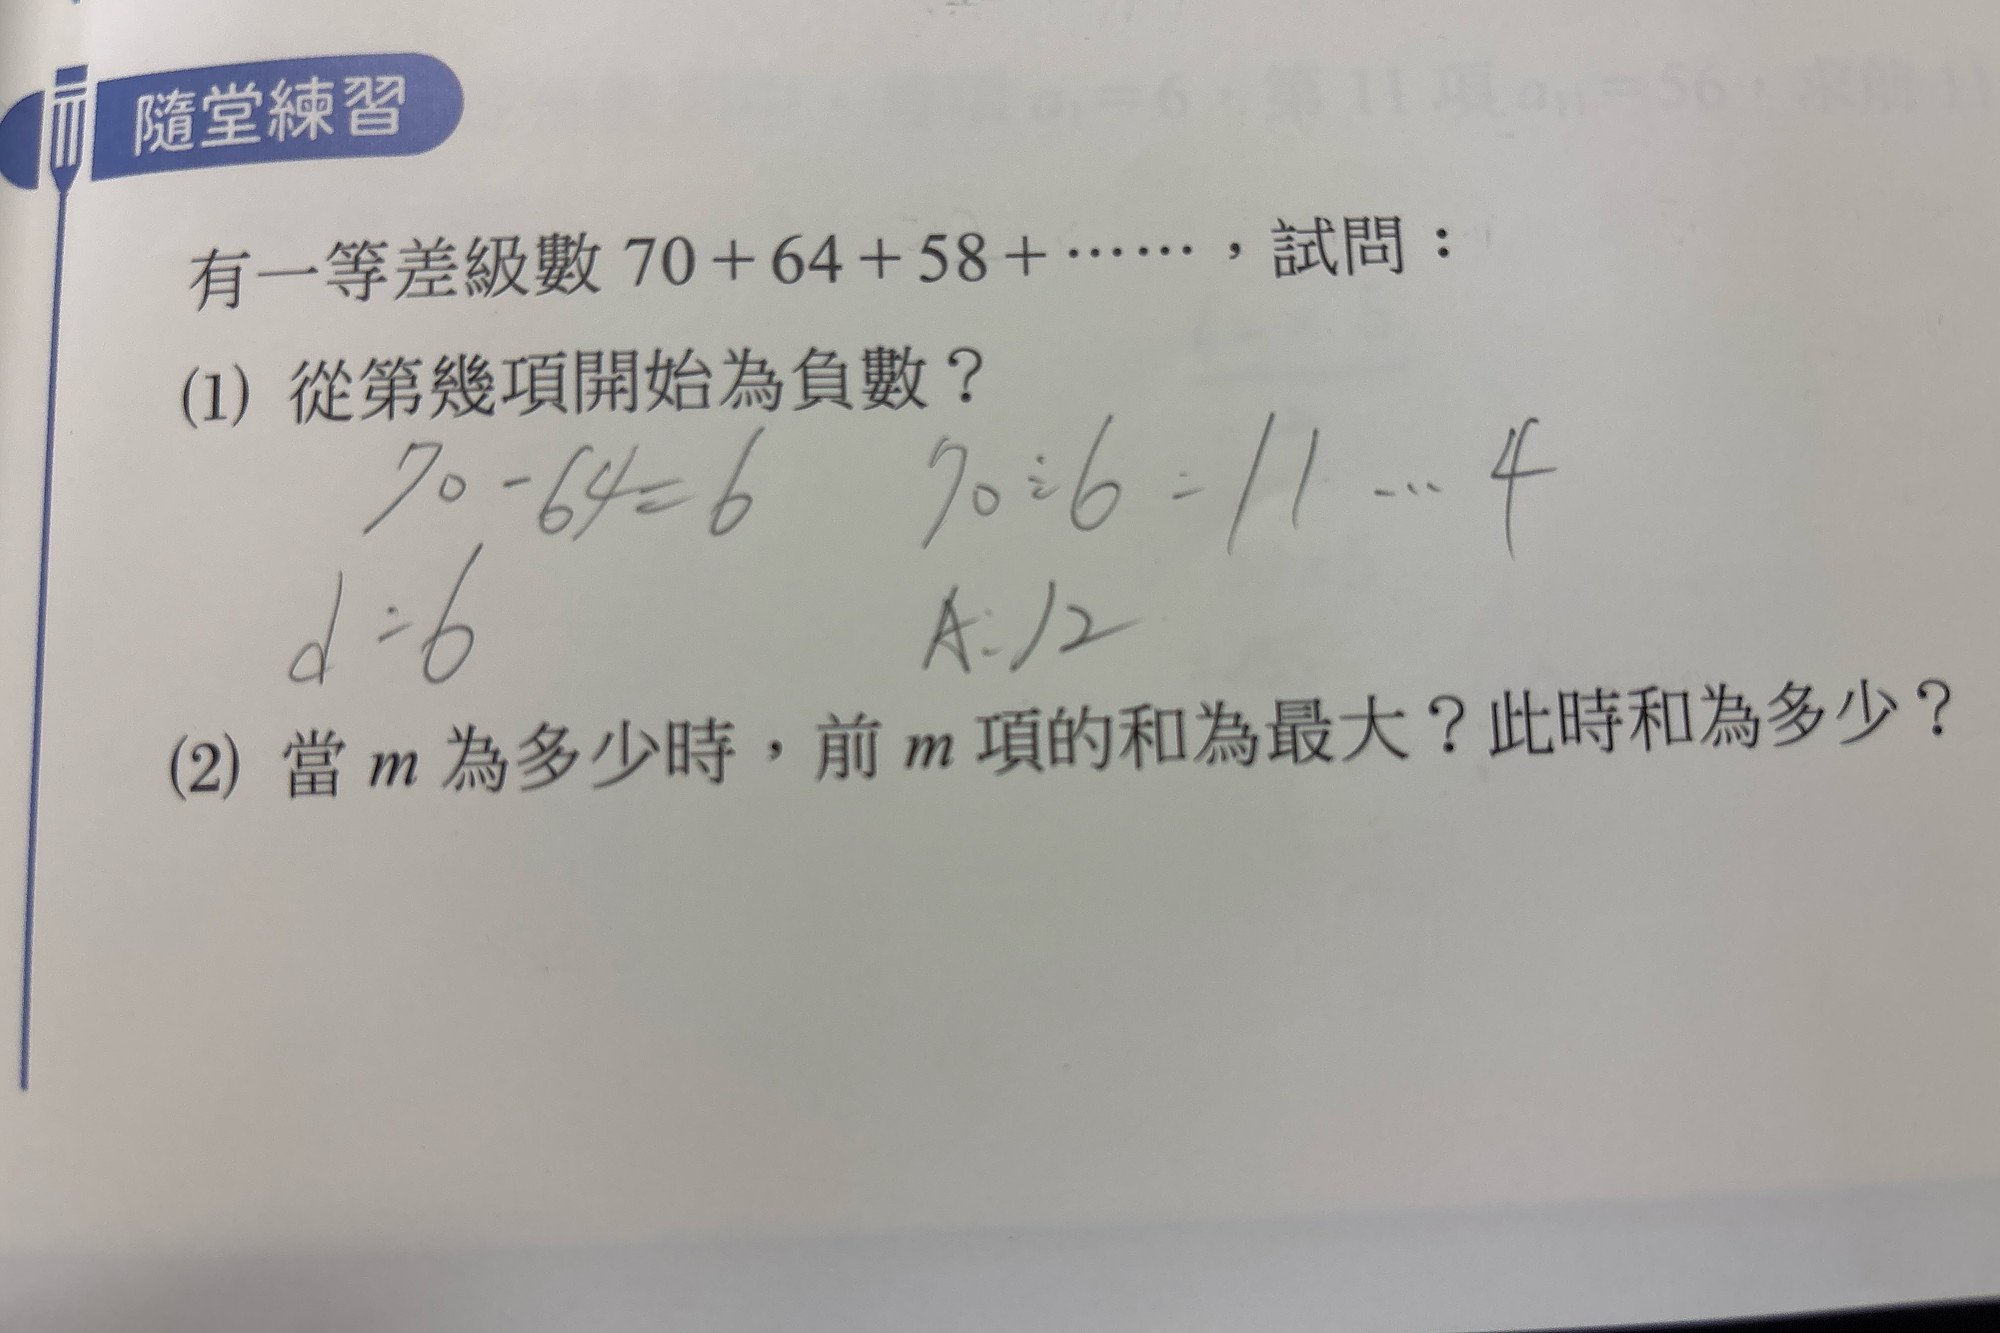 a₁=6，第 11 項 a₁₁=56，求 11
隨堂練習
有一等差級數 70＋64＋58＋……，試問：
(1) 從第幾項開始為負數？
70-64=6 70÷6=11…4
d=6 A:12
(2) 當 m 為多少時，前 m 項的和為最大？此時和為多少？